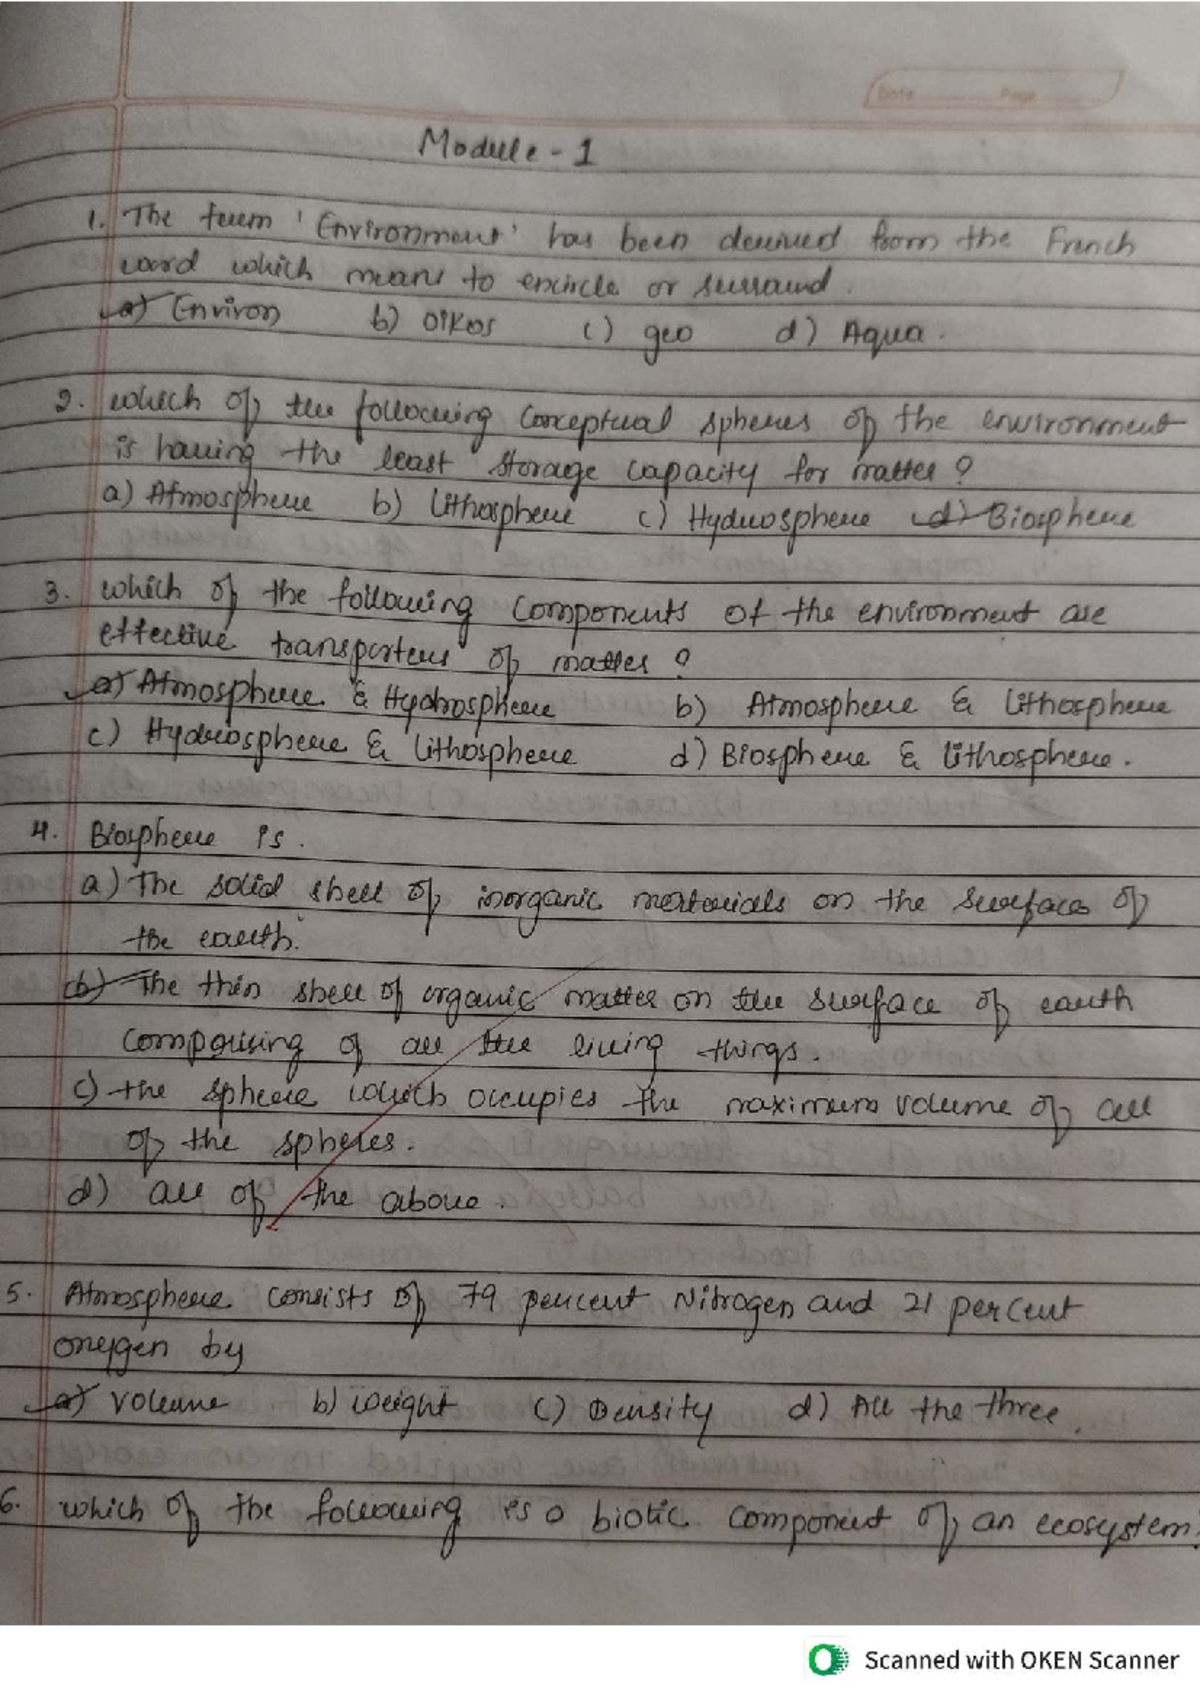 Date Page
Module - 1
1. The term 'Environment' has been derived from the French
word which means to encircle or surround.
a) Environ b) Oikos c) geo d) Aqua.
2. which of the following conceptual spheres of the environment
is having the least storage capacity for matter?
a) Atmosphere b) Lithosphere c) Hydrosphere d) Biosphere
3. which of the following components of the environment are
effective transporters of matter?
a) Atmosphere & Hydrosphere b) Atmosphere & Lithosphere
c) Hydrosphere & Lithosphere d) Biosphere & lithosphere.
4. Biosphere is.
a) The solid shell of inorganic materials on the surface of
the earth.
b) The thin shell of organic matter on the surface of earth
comprising of all the living things.
c) the sphere which occupies the maximum volume of all
of the spheres.
d) all of the above.
5. Atmosphere consists of 79 percent Nitrogen and 21 percent
oxygen by
a) volume b) weight c) Density d) All the three.
6. which of the following is a biotic component of an ecosystem?
Scanned with OKEN Scanner